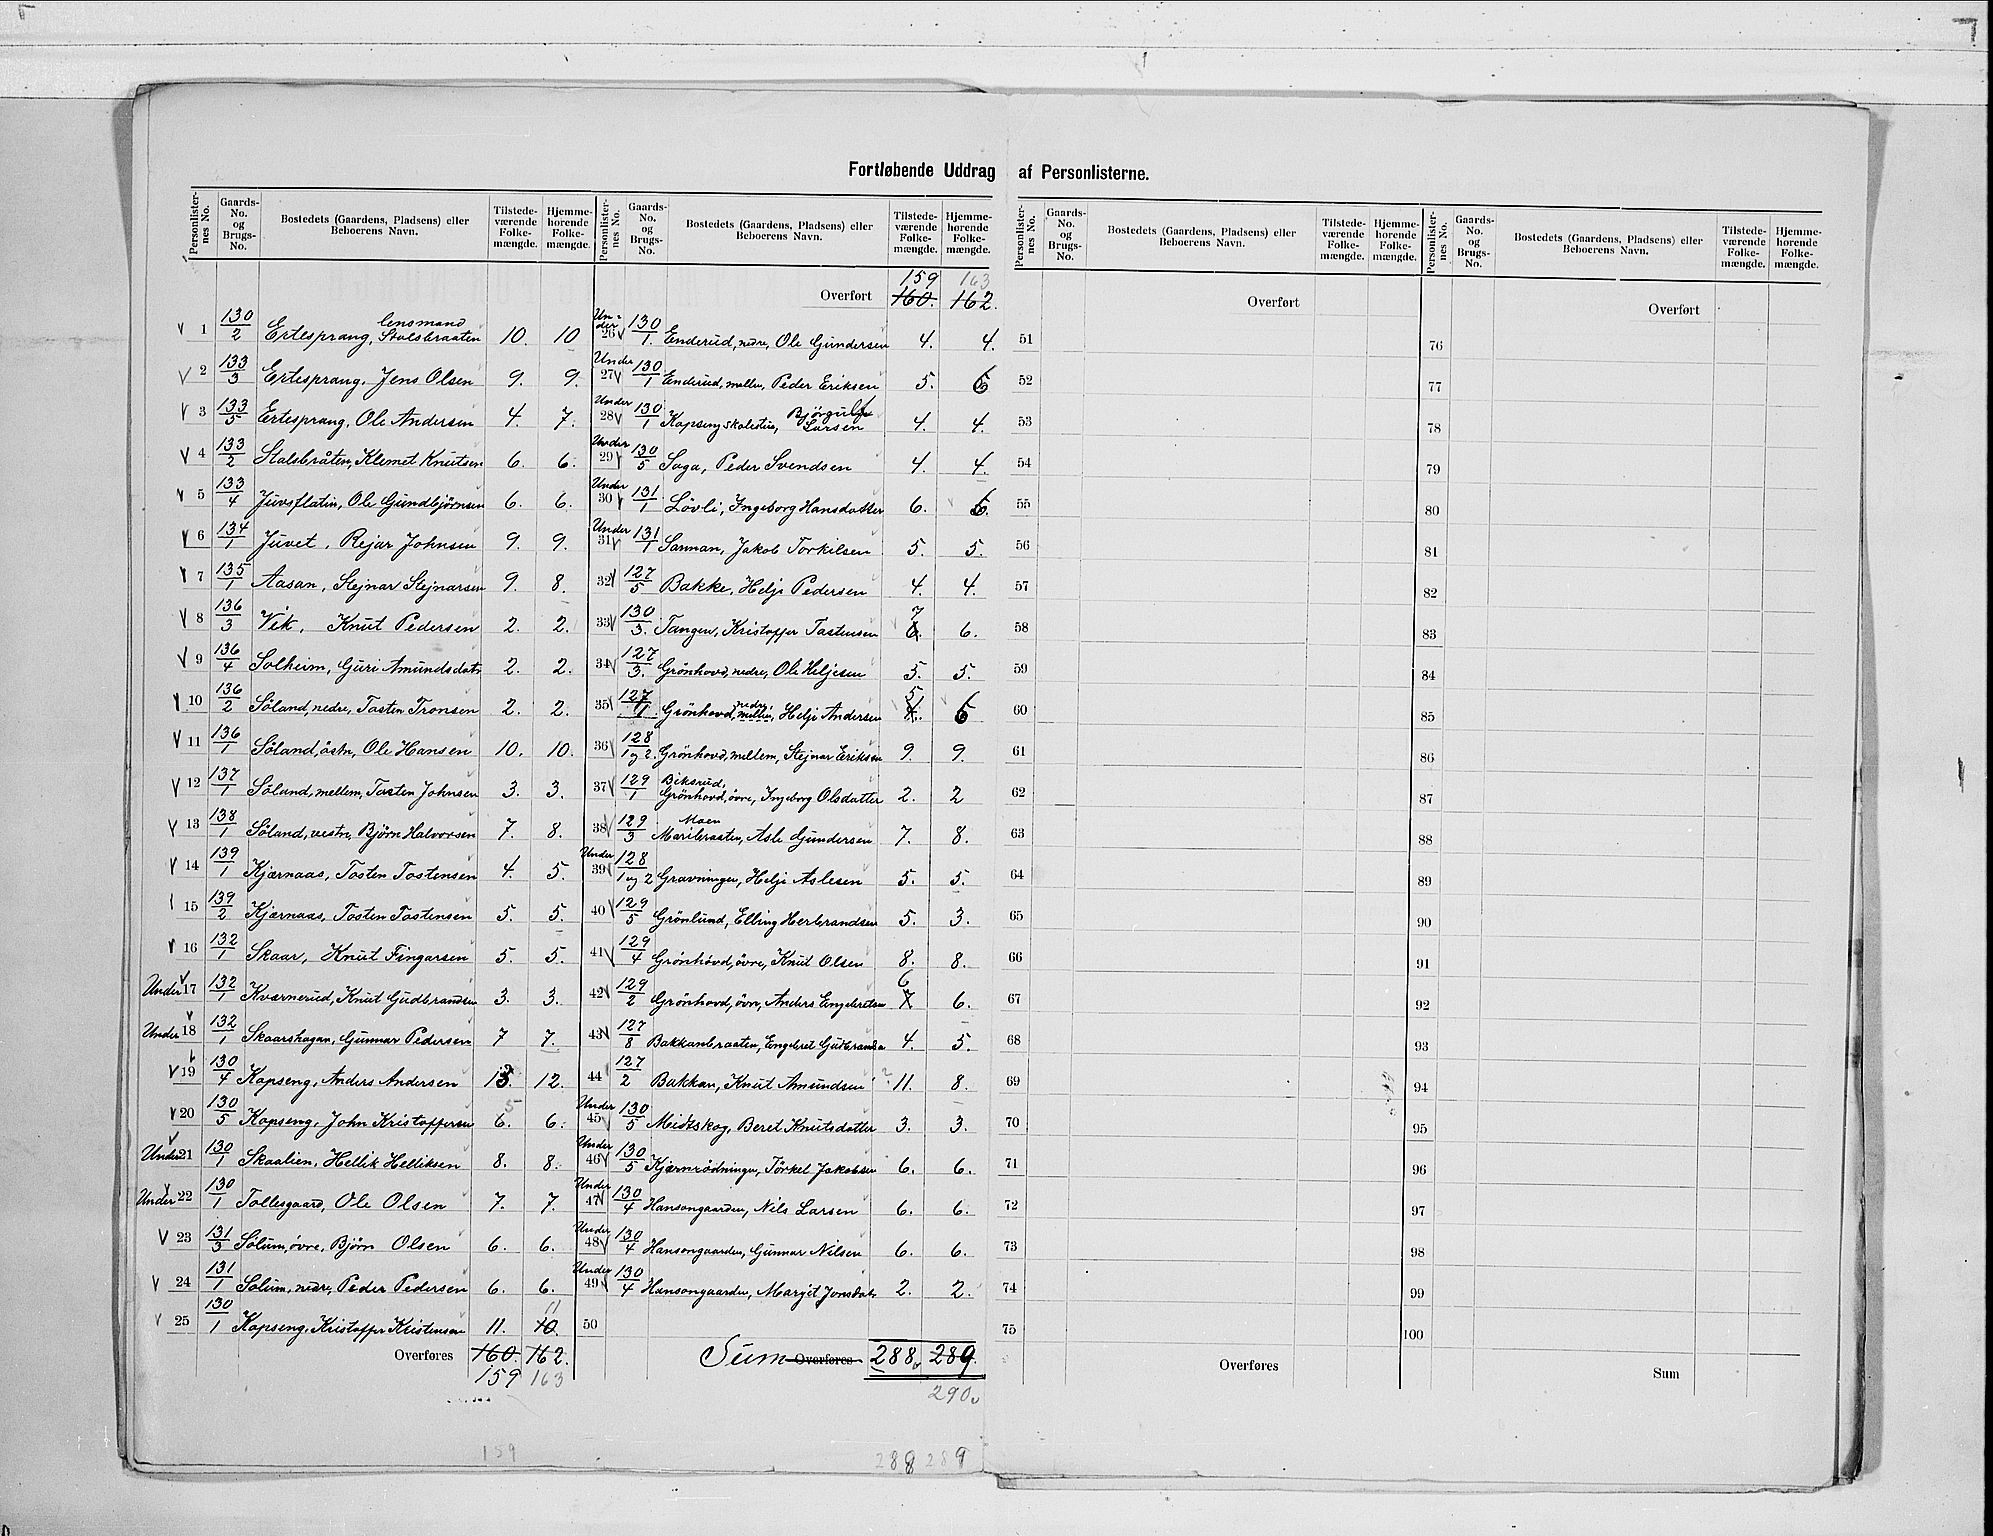 Fortløbende Uddrag af Personlisterne.
Personlister-nes No. Gaards-No. og Brugs-No. Bostedets (Gaardens, Pladsens) eller Beboerens Navn. Tilstede-værende Folke-mængde. Hjemme-hørende Folke-mængde.
1 130/2 Ertesprang, lensmand Stalsbraaten 10. 10
2 133/3 Ertesprang, Jens Olsen 9. 9.
3 133/5 Ertesprang, Ole Andersen 4. 7.
4 133/2 Stalsbråten, Klemet Knutsen 6. 6.
5 133/4 Juvsflatin, Ole Gundbjörnsen 6. 6.
6 134/1 Juvet, Rejar Johnsen 9. 9.
7 135/1 Aasan, Stejnar Stejnarsen 9. 8.
8 136/3 Vik, Knut Pedersen 2. 2.
9 136/4 Solheim, Guri Amundsdatr 2. 2.
10 136/2 Söland, nedre, Tosten Tronsen 2. 2.
11 136/1 Söland, östre, Ole Hansen 10. 10.
12 137/1 Söland, mellem, Tosten Johnsen 3. 3.
13 138/1 Söland, vestre, Björn Halvorsen 7. 8.
14 139/1 Kjærnaas, Tosten Tostensen 4. 5.
15 139/2 Kjærnaas, Tosten Tostensen 5. 5.
16 132/1 Skaar, Knut Fingarsen 5. 5.
Under 17 132/1 Kværnerud, Knut Gudbrandsen 3. 3.
Under 18 132/1 Skaarshagan, Gunnar Pedersen 7 7.
19 130/4 Kapseng, Anders Andersen 12.
20 130/5 Kapseng, John Kristoffersen 5 6. 6.
Under 21 130/1 Skaalien, Hellik Helliksen 8. 8.
Under 22 130/1 Tollesgaard, Ole Olsen 7. 7.
23 131/3 Sölum, övre, Björn Olsen 6. 6.
24 131/1 Sölum, nedre, Peder Pedersen 6. 6.
25 130/1 Kapseng, Kristoffer Kristensen 11. 10. 11
Overføres 160. 162.
159 163
159
Personlister-nes No. Gaards-No. og Brugs-No. Bostedets (Gaardens, Pladsens) eller Beboerens Navn. Tilstede-værende Folke-mængde. Hjemme-hørende Folke-mængde.
159 163
Overført 160. 162.
Under 26 130/1. Enderud, nedre, Ole Gundersen 4. 4.
Under 27 130/1 Enderud, mellem, Peder Eriksen 5. 6
Under 28 130/1 Kapseng skolestue, Björgulf Larsen 4. 4.
Under 29 130/5 Saga, Peder Svendsen 4. 4.
Under 30 131/1 Lövli, Ingeborg Hansdatter 6. 6
Under 31 131/1 Sannan, Jakob Torkilsen 5. 5.
32 127/5 Bakke, Helje Pedersen 4. 4.
33 130/3. Tangen, Kristoffer Tostensen 7 6. 6.
34 127/3. Grönhovd, nedre, Ole Heljesen 5. 5.
35 127/1. Grönhovd, mellem, nedre, Helje Andersen 5 4. 6
36 128/1 og 2. Grönhovd, mellem, Stejnar Eriksen 9. 9.
37 129/1 Biksrud, Grönhovd, övre, Ingeborg Olsdatter 2. 2
38 129/3 Moen Maribraaten, Asle Gundersen 7. 8.
Under 39 128/1 og 2 Gravningen, Helje Aslesen 5. 5.
40 129/5 Grönlund, Elling Herbrandsen 5. 3.
41 129/4 Grönhovd, övre, Knut Olsen 8. 8.
42 129/2 Grönhovd, övre, Anders Engebretsen 6 7 6.
43 127/8 Bakkanbraaten, Engebret Gulbrandsen 4. 5.
44 127/2 Bakkan, Knut Amundsen ? 11. 8.
Under 45 130/5 Midtskog, Beret Knutsdatter 3. 3.
Under 46 130/5 Kjærnrödningen, Törkel Jakobsen 6. 6.
Under 47 130/4 Hansongaarden, Nils Larsen 6. 6.
Under 48 130/4 Hansongaarden, Gunnar Nilsen 6. 6.
Under 49 130/4 Hansongaarden, Margit Jonsdatr 2. 2.
50
Sum Overføres 288. 289.
290
288 289
Personlister-nes No. Gaards-No. og Brugs-No. Bostedets (Gaardens, Pladsens) eller Beboerens Navn. Tilstede-værende Folke-mængde. Hjemme-hørende Folke-mængde.
Overført
51
52
53
54
55
56
57
58
59
60
61
62
63
64
65
66
67
68
69
70
71
72
73
74
75
Overføres
Personlister-nes No. Gaards-No. og Brugs-No. Bostedets (Gaardens, Pladsens) eller Beboerens Navn. Tilstede-værende Folke-mængde. Hjemme-hørende Folke-mængde.
Overført
76
77
78
79
80
81
82
83
84
85
86
87
88
89
90
91
92
93
94
95
96
97
98
99
100
Sum